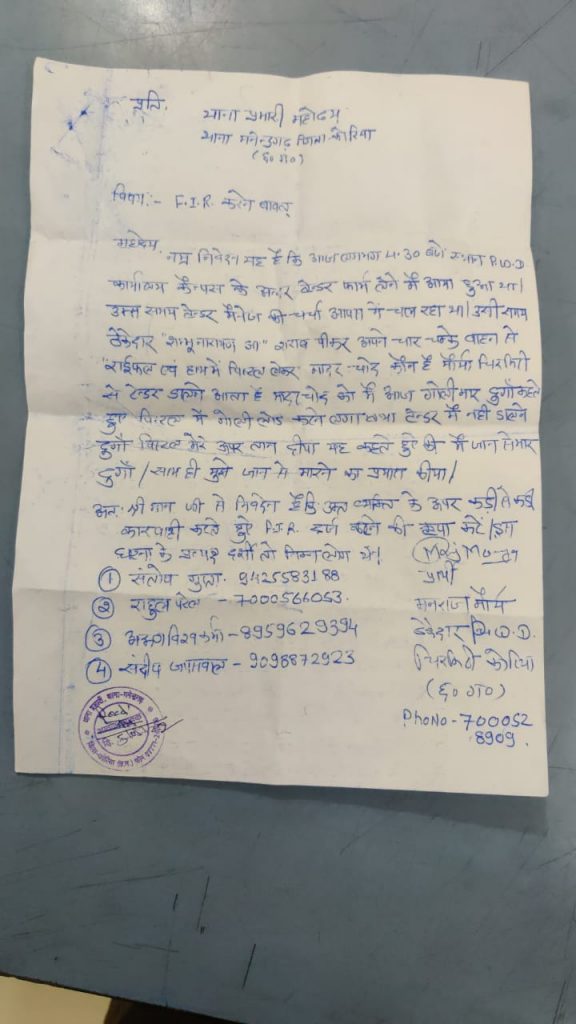 प्रति,
थाना प्रभारी महोदय
थाना मनेन्द्रगढ़ जिला कोरिया
(छ० ग०)
विषय :- F.I.R. करने बाबत्
महोदय,
नम्र निवेदन यह है कि आज लगभग 4.30 बजे स्थान P.W.D
कार्यालय कैम्पस के अन्दर टेन्डर फार्म लेने में आया हुआ था।
उस समय टेन्डर मैनेज की चर्चा आपस में चल रहा था। उसी समय
ठेकेदार "शम्भूनारायण झा" शराब पीकर अपने चार चक्के वाहन से
राईफल एवं हाथ में पिस्टल लेकर मादर चोद कौन है मौर्या चिरमिरी
से टेन्डर डालने आता है मादरचोद को मैं आज गोली मार दुगाँ कहते
हुए पिस्टल में गोली लोड करने लगा तथा टेन्डर मैं नही डालने
दुगाँ पिस्टल मेरे ऊपर तान दीया यह कहते हुए की मैं जान से मार
दुगाँ / साथ ही मुझे जान से मारने का प्रयास कीया/
अतः श्री मान जी से निवेदन है कि उक्त व्यक्ति के ऊपर कड़ी से कड़ी
कारवाही करते हुए F.I.R. दर्ज करने की कृपा करें / इस
घटना के प्रत्यक्ष दर्शी तो निम्न लोग थे।
प्रार्थी
① संतोष गुप्ता. 9425583188
मनराज मौर्य
② राहुल पटेल - 7000566053.
ठेकेदार P.W.D.
③ विश्वकर्मा - 8959629394
चिरमिरी कोरिया
④ संदीप जायसवाल - 9098872923
(छ० ग०)
PhoNo - 700052
8909.